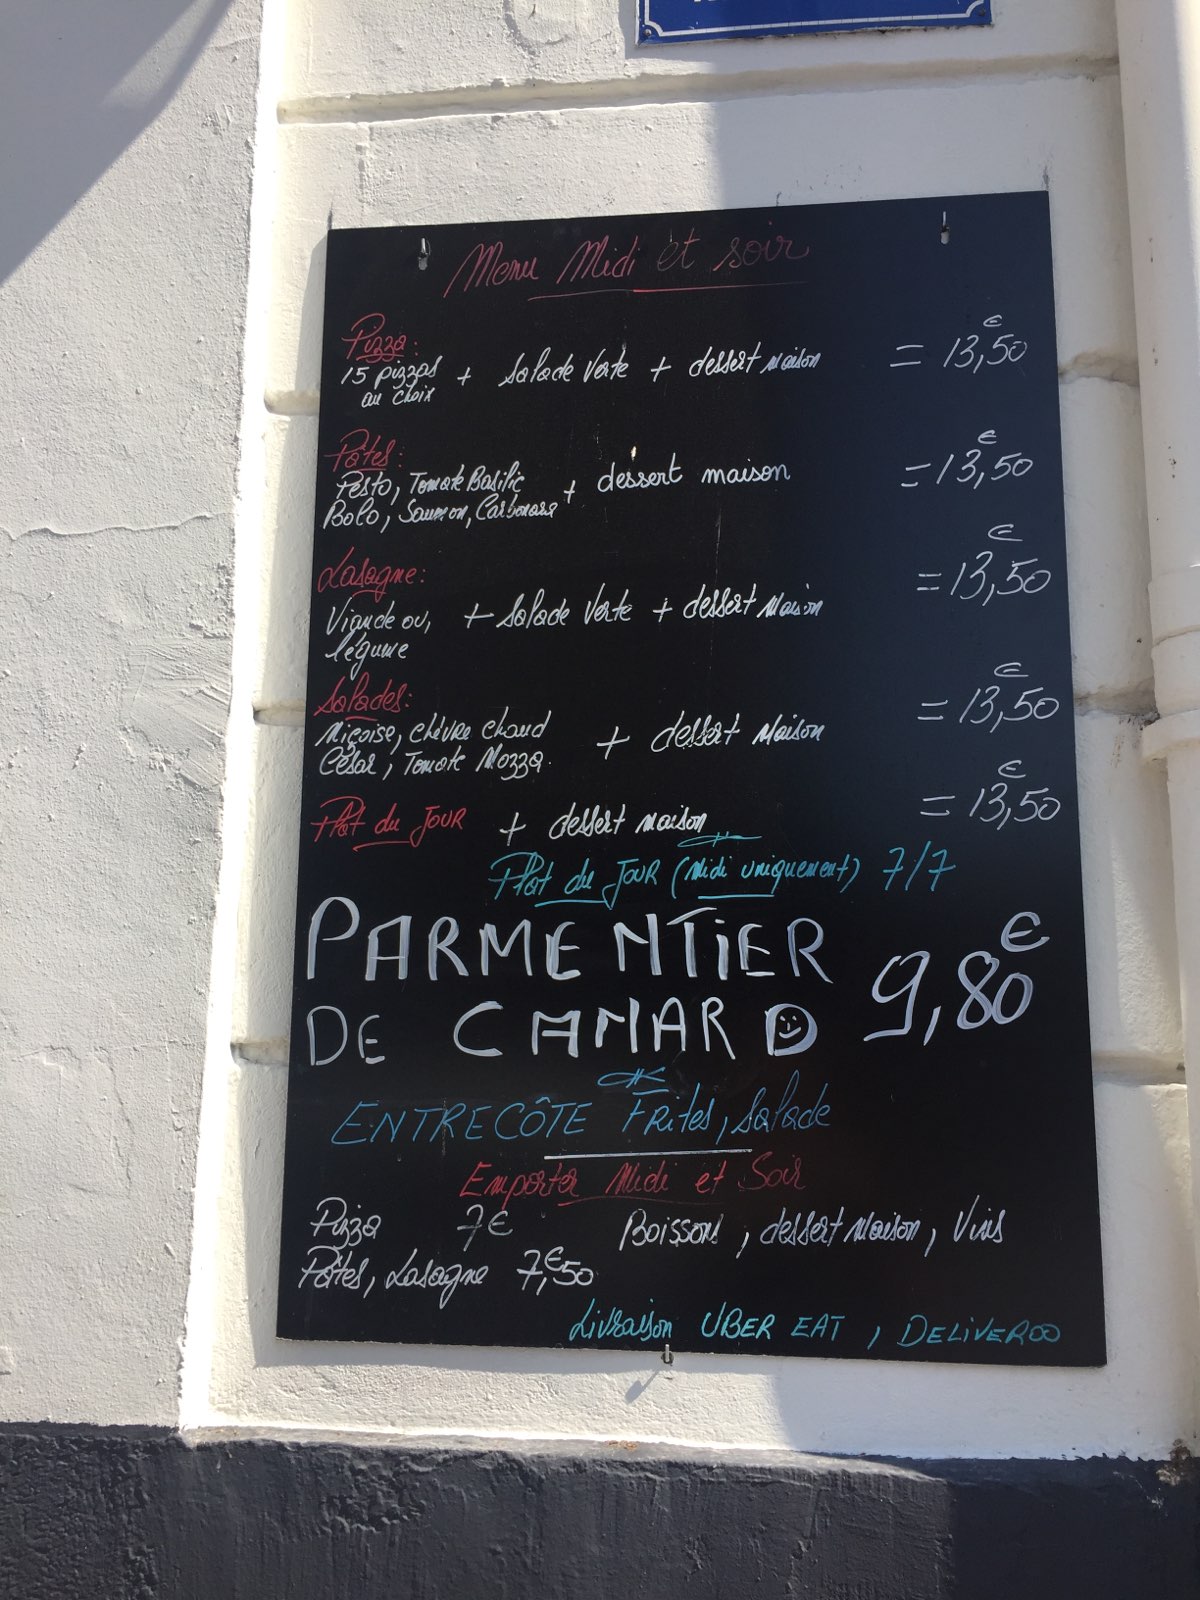 Menu Midi et soir
Pizza:
15 pizzas + salade verte + dessert maison = 13,50 €
au choix
Pâtes:
Pesto, Tomate Basilic + dessert maison = 13,50 €
Bolo, Saumon, Carbonara
Lasagne:
Viande ou, + salade verte + dessert maison = 13,50 €
légume
Salades:
Niçoise, chèvre chaud + dessert maison = 13,50 €
César, Tomate Mozza.
Plat du Jour + dessert maison = 13,50 €
Plat du Jour (Midi uniquement) 7/7
PARMENTIER
DE CANARD 9,80 €
ENTRECÔTE Frites, salade
Emporter Midi et Soir
Pizza 7€ Boissons, dessert maison, Vins
Pâtes, Lasagne 7,€50
Livraison UBER EAT, DELIVEROO